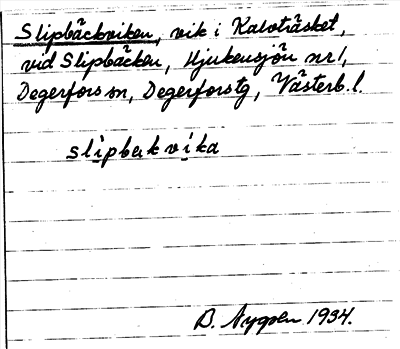 Slipbäckviken, vik i Kaloträsket,
vid Slipbäcken, Hjukensjön nr 1,
Degerfors sn, Degerfors tg, Västerb. l.
slipbekvika
B. 1934.